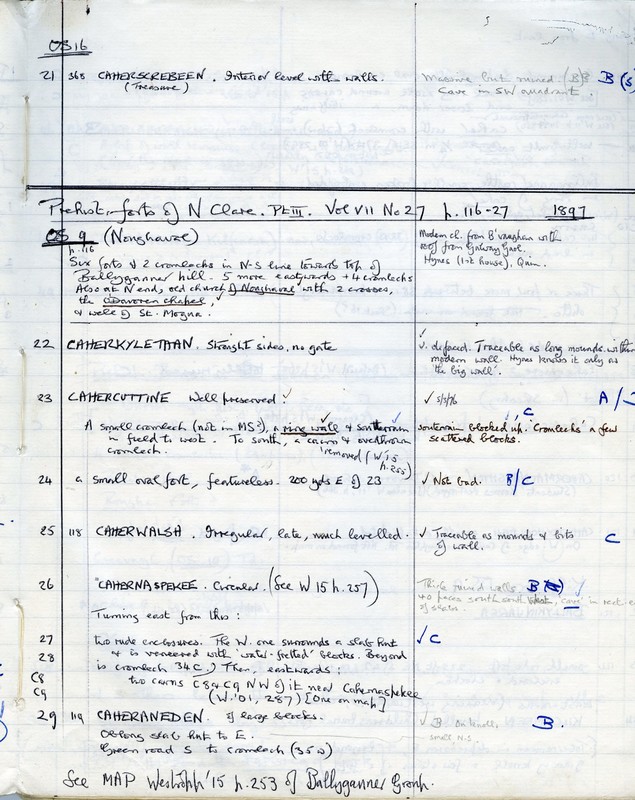 OS 16
21 368 CAHERSCREBEEN. Interior level with walls.
(Treasure)
Massive but ruined (B)? B (S
Cave in SW quadrant.
Prehist. forts of N Clare. Pt III. Vol VII No 27 p. 116-27 1897
OS 9 (Noughaval)
p. 116
Six forts & 2 cromlechs in N-S line towards top of
Ballyganner hill. 5 more eastwards + 4 cromlechs
Also at N end, old church of Noughaval with 2 crosses,
the Davoren chapel, ✓
& well of St. Mogua.
Modern cl. from B'vaughan with
roof from Galway Gaol.
Hynes (1st house), Quin.
22 CAHERKYLETAAN. Straight sides, no gate
✓ defaced. Traceable as long mounds with
modern wall. Hynes knows it only as
'the big wall'.
23 CAHERCUTTINE Well preserved. ✓
✓ 5/3/76 A/
C
A small cromlech (not in MS?), a ring wall & souterrain
in field to west. To south, a cairn & overthrown
cromlech. removed (W '15
p. 255)
souterrain blocked up. 'Cromlechs' a few
scattered blocks.
24 a small oval fort, featureless. 200 yds E of 23
✓ Not bad. B/C
25 118 CAHERWALSH. Irregular, late, much levelled.
✓ Traceable as mounds & bits
of wall. C
26 "CAHERNASPEKEE. Circular. (See W 15 p. 257)
Thick ruined walls. B
40 paces south west, cave in rect. e
of slabs.
Turning east from this:
27 two rude enclosures. The W. one surrounds a slab hut
✓ C
28 & is veneered with 'water-fretted' blocks. Beyond
is cromlech 34C. Then, eastwards:
C8 two cairns C8 & C9 NW of it near Cahernaspekee
C9 (W. '01, 287) [One on map]
29 119 CAHERANEDEN. of large blocks.
✓ B. B.
Oblong slab hut to E.
small N.S.
Green road S to cromlech (35 D)
See MAP Westropp '15 p. 253 of Ballyganner Group.